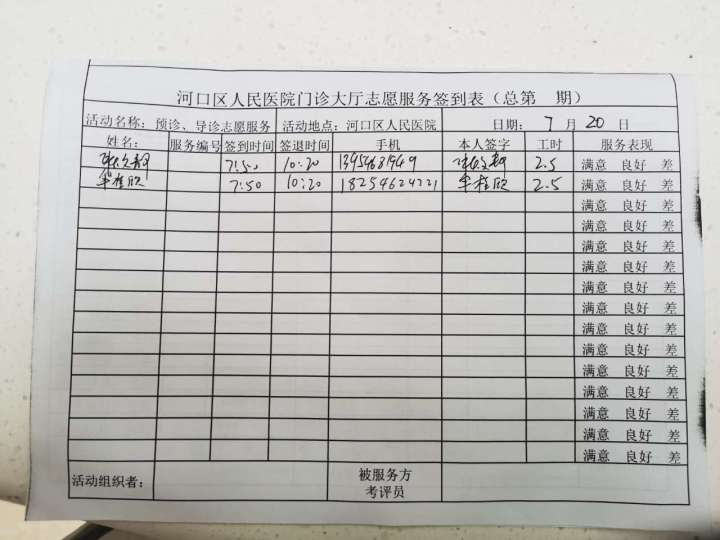 河口区人民医院门诊大厅志愿服务签到表（总第 期）
活动名称：预诊、导诊志愿服务 活动地点：河口区人民医院 日期：7月20日
姓名： 服务编号 签到时间 签退时间 手机 本人签字 工时 服务表现
7:50 10:20 2.5 满意 良好 差
7:50 10:20 18254624221 2.5 满意 良好 差
满意 良好 差
满意 良好 差
满意 良好 差
满意 良好 差
满意 良好 差
满意 良好 差
满意 良好 差
满意 良好 差
满意 良好 差
满意 良好 差
满意 良好 差
满意 良好 差
满意 良好 差
活动组织者： 被服务方
考评员